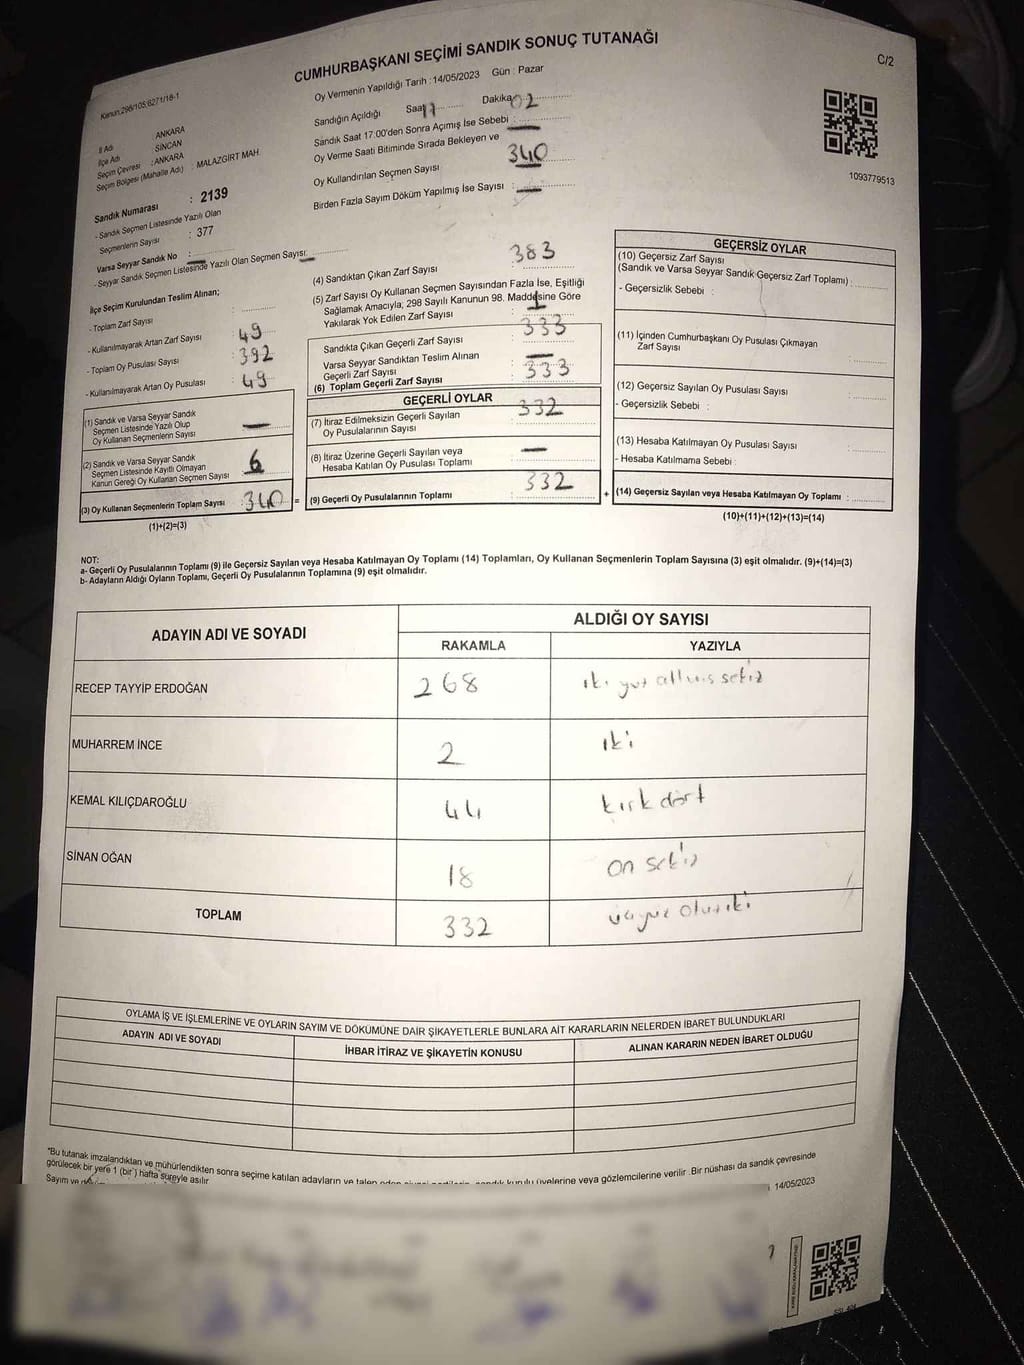 CUMHURBAŞKANI SEÇİMİ SANDIK SONUÇ TUTANAĞI
C/2
Kanun:298/105;6271/18-1
Oy Vermenin Yapıldığı Tarih :14/05/2023 Gün : Pazar
Sandığın Açıldığı Saat 17 Dakika 02
Sandık Saat 17:00'den Sonra Açımış İse Sebebi : —
Oy Verme Saati Bitiminde Sırada Bekleyen ve
Oy Kullandırılan Seçmen Sayısı : 340
Birden Fazla Sayım Döküm Yapılmış İse Sayısı : —
1093779513
İl Adı ANKARA
İlçe Adı SİNCAN
Seçim Çevresi :ANKARA
Seçim Bölgesi (Mahalle Adı) : MALAZGİRT MAH.
Sandık Numarası : 2139
- Sandık Seçmen Listesinde Yazılı Olan
Seçmenlerin Sayısı : 377
Varsa Seyyar Sandık No : —
- Seyyar Sandık Seçmen Listesinde Yazılı Olan Seçmen Sayısı: —
İlçe Seçim Kurulundan Teslim Alınan;
- Toplam Zarf Sayısı :
- Kullanılmayarak Artan Zarf Sayısı : 49
- Toplam Oy Pusulası Sayısı : 392
- Kullanılmayarak Artan Oy Pusulası : 49
(1) Sandık ve Varsa Seyyar Sandık
Seçmen Listesinde Yazılı Olup
Oy Kullanan Seçmenlerin Sayısı —
(2) Sandık ve Varsa Seyyar Sandık
Seçmen Listesinde Kayıtlı Olmayan
Kanun Gereği Oy Kullanan Seçmen Sayısı : 6
(3) Oy Kullanan Seçmenlerin Toplam Sayısı : 340 =
(1)+(2)=(3)
(4) Sandıktan Çıkan Zarf Sayısı : 383
(5) Zarf Sayısı Oy Kullanan Seçmen Sayısından Fazla İse, Eşitliği
Sağlamak Amacıyla; 298 Sayılı Kanunun 98. Maddesine Göre
Yakılarak Yok Edilen Zarf Sayısı : 1
Sandıkta Çıkan Geçerli Zarf Sayısı : 333
Varsa Seyyar Sandıktan Teslim Alınan
Geçerli Zarf Sayısı : —
(6) Toplam Geçerli Zarf Sayısı : 333
GEÇERLİ OYLAR
(7) İtiraz Edilmeksizin Geçerli Sayılan
Oy Pusulalarının Sayısı : 332
(8) İtiraz Üzerine Geçerli Sayılan veya
Hesaba Katılan Oy Pusulası Toplamı : —
(9) Geçerli Oy Pusulalarının Toplamı : 332 +
GEÇERSİZ OYLAR
(10) Geçersiz Zarf Sayısı
(Sandık ve Varsa Seyyar Sandık Geçersiz Zarf Toplamı) :
- Geçersizlik Sebebi :
(11) İçinden Cumhurbaşkanı Oy Pusulası Çıkmayan
Zarf Sayısı :
(12) Geçersiz Sayılan Oy Pusulası Sayısı :
- Geçersizlik Sebebi :
(13) Hesaba Katılmayan Oy Pusulası Sayısı :
- Hesaba Katılmama Sebebi :
(14) Geçersiz Sayılan veya Hesaba Katılmayan Oy Toplamı :
(10)+(11)+(12)+(13)=(14)
NOT:
a- Geçerli Oy Pusulalarının Toplamı (9) ile Geçersiz Sayılan veya Hesaba Katılmayan Oy Toplamı (14) Toplamları, Oy Kullanan Seçmenlerin Toplam Sayısına (3) eşit olmalıdır. (9)+(14)=(3)
b- Adayların Aldığı Oyların Toplamı, Geçerli Oy Pusulalarının Toplamına (9) eşit olmalıdır.
ADAYIN ADI VE SOYADI ALDIĞI OY SAYISI
RAKAMLA YAZIYLA
RECEP TAYYİP ERDOĞAN 268 iki yüz altmış sekiz
MUHARREM İNCE 2 iki
KEMAL KILIÇDAROĞLU 44 kırk dört
SİNAN OĞAN 18 on sekiz
TOPLAM 332
OYLAMA İŞ VE İŞLEMLERİNE VE OYLARIN SAYIM VE DÖKÜMÜNE DAİR ŞİKAYETLERLE BUNLARA AİT KARARLARIN NELERDEN İBARET BULUNDUKLARI
ADAYIN ADI VE SOYADI İHBAR İTİRAZ VE ŞİKAYETİN KONUSU ALINAN KARARIN NEDEN İBARET OLDUĞU
*Bu tutanak imzalandıktan ve mühürlendikten sonra seçime katılan adayların ve talep eden kurulu üyelerine veya gözlemcilerine verilir .Bir nüshası da sandık çevresinde
görülecek bir yere 1 (bir ) hafta süreyle asılır
Sayım ve 14/05/2023